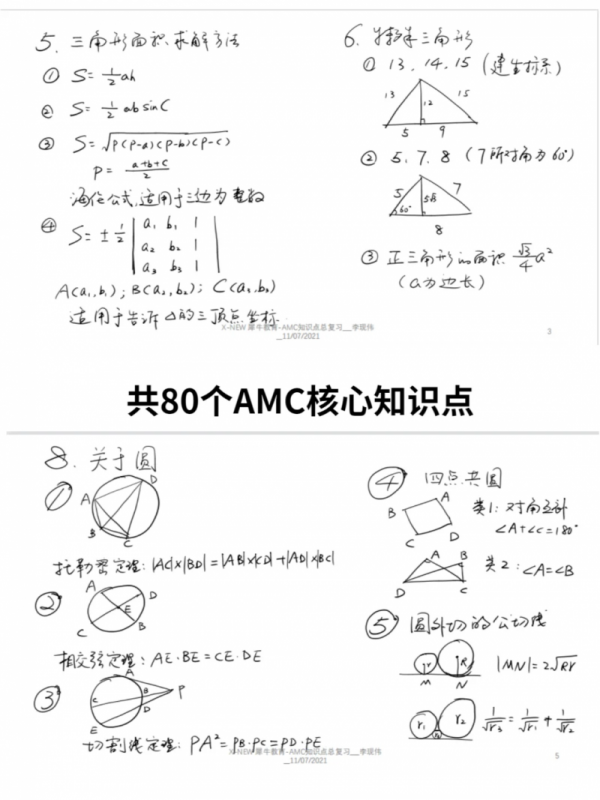 5. 三角形面积求解方法
① S=½ah
② S=½absinC
③ S=√P(P-a)(P-b)(P-c)
P=(a+b+c)/2
海伦公式,适用于三边为整数
④ S=±½ |a₁ b₁ 1|
|a₂ b₂ 1|
|a₃ b₃ 1|
A(a₁,b₁); B(a₂,b₂); C(a₃,b₃)
适用于告诉△的三顶点坐标
6. 特殊三角形
① 13,14,15 (建坐标系)
13 12 15
5 9
② 5,7,8 (7所对角为60°)
5 7
60°
8
③ 正三角形的面积 √3/4 a²
(a为边长)
X-NEW 犀牛教育-AMC知识点总复习__李琛伟
__11/07/2021
3
共80个AMC核心知识点
8. 关于圆
① A B C D
托勒密定理: |AC|×|BD|=|AB|×|CD|+|AD|×|BC|
② A D E C B
相交弦定理: AE·BE=CE·DE
③ A B C D E P
切割线定理: PA²=PB·PC=PD·PE
④ 四点共圆
A B C D
类1: 对角互补
∠A+∠C=180°
A B D C
类2: ∠A=∠B
⑤ 圆外切的公切线
r R M N
|MN|=2√Rr
r₁ r₂ 1/√r₃=1/√r₁+1/√r₂
X-NEW 犀牛教育-AMC知识点总复习__李琛伟
__11/07/2021
5